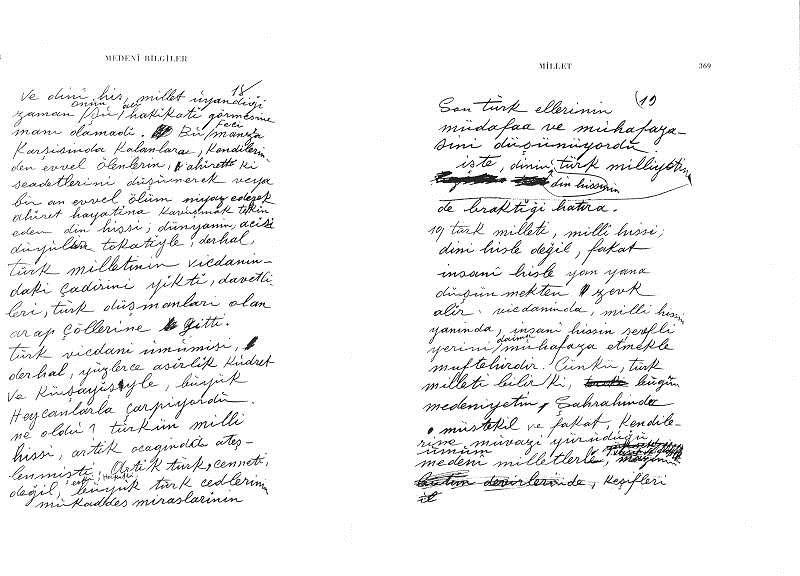 MEDENİ BİLGİLER
18
ve dini his, millet uyandığı
zaman onun acı hakikati görmesine
mani olamadı. Bu feci manzara
karşısında kalanlara, kendilerin-
den evvel ölenlerin, ahiretteki
seadetlerini düşünerek veya
bir an evvel ölüm niyaz ederek
ahiret hayatına kavuşmak telkin
eden din hissi; dünyanın, acısı
duyulan tokatiyle, derhal,
türk milletinin vicdanın-
daki çadırını yıktı, davetli-
leri, türk düşmanları olan
arap çöllerine gitti.
türk vicdani umumisi,
derhal, yüzlerce asırlık kudret
ve küşayişiyle, büyük
heycanlarla çarpıyordu.
ne oldu? türkün milli
hissi, artık ocağında ateş-
lenmişti. Artık türk, cenneti,
değil, eski, büyük türk cedlerinin
mukaddes miraslarının
MİLLET 369
19
Son türk ellerinin
müdafaa ve muhafaza-
sını düşünüyordu
işte, dinin, türk milliyetin
din hissinin
de bıraktığı hatıra.
19 türk milleti, milli hissi;
dini hisle değil, fakat
insani hisle yan yana
düşünmekten zevk
alır. vicdanında, milli hissin
yanında, insani hissin şerefli
yerini daima muhafaza etmekle
muftehirdir. Çünkü, türk
milleti bilir ki, bugün
medeniyetin, Şahrahında
müstekil ve fakat, kendile-
rine müvazi yürüdüğü
umum
medeni milletlerle,
keşifleri